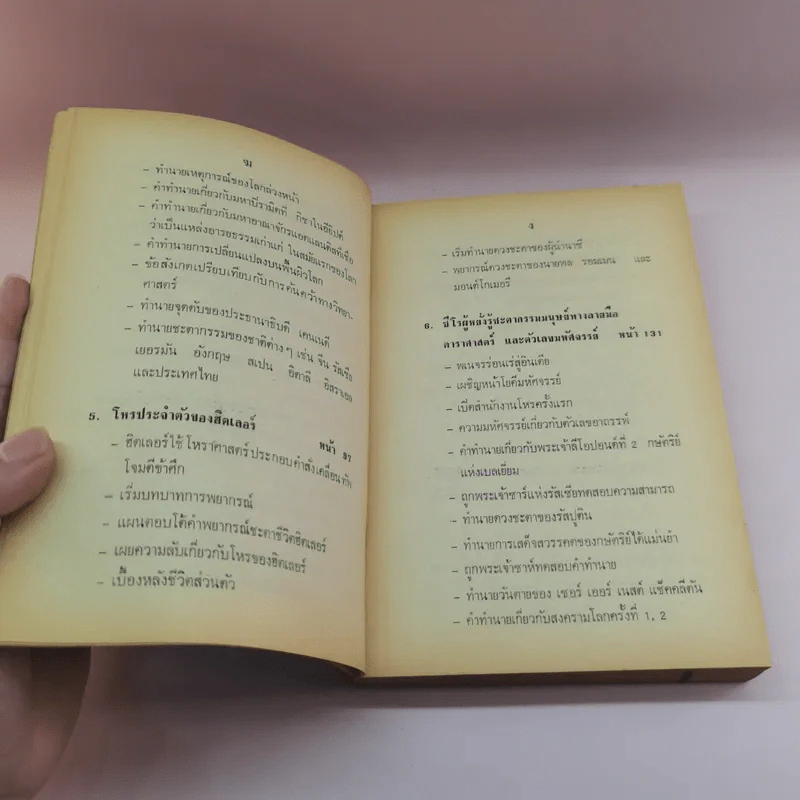 ฆ
- ทำนายเหตุการณ์ของโลกล่วงหน้า
- คำทำนายเกี่ยวกับมหาปีรามิดที่ กิซาในอียิปต์
- คำทำนายเกี่ยวกับมหาอาณาจักรแอตแลนติสที่เชื่อ
ว่าเป็นแหล่งอารยธรรมเก่าแก่ ในสมัยแรกของโลก
- คำทำนายการเปลี่ยนแปลงบนพื้นผิวโลก
- ข้อสังเกตเปรียบเทียบกับการค้นคว้าทางวิทยา-
ศาสตร์
- ทำนายจุดดับของประธานาธิบดี เคนเนดี
- ทำนายชะตากรรมของชาติต่างๆ เช่น จีน รัสเซีย
เยอรมัน อังกฤษ สเปน อิตาลี อิสราเอล
และประเทศไทย
5. โหรประจำตัวของฮิตเลอร์ หน้า 97
- ฮิตเลอร์ใช้โหราศาสตร์ประกอบคำสั่งเคลื่อนทัพ
โจมตีข้าศึก
- เริ่มบทบาทการพยากรณ์
- แผนตอบโต้คำพยากรณ์ชะตาชีวิตฮิตเลอร์
- เผยความลับเกี่ยวกับโหรของฮิตเลอร์
- เบื้องหลังชีวิตส่วนตัว
ง
- เริ่มทำนายดวงชะตาของผู้นำนาซี
- พยากรณ์ดวงชะตาของนายพล รอมเมล และ
มอนต์โกเมอรี
6. ชีโรผู้หยั่งรู้ชะตากรรมมนุษย์ทางลายมือ
ดาราศาสตร์ และตัวเลขมหัศจรรย์ หน้า 131
- พเนจรร่อนเร่สู่อินเดีย
- เผชิญหน้าโยคีมหัศจรรย์
- เปิดสำนักงานโหรครั้งแรก
- ความมหัศจรรย์เกี่ยวกับตัวเลขอาถรรพ์
- คำทำนายเกี่ยวกับพระเจ้าลีโอปอนด์ที่ 2 กษัตริย์
แห่งเบลเยี่ยม
- ถูกพระเจ้าซาร์แห่งรัสเซียทดสอบความสามารถ
- ทำนายดวงชะตาของรัสปูติน
- ทำนายการเสด็จสวรรคตของกษัตริย์ได้แม่นยำ
- ถูกพระเจ้าชาห์ทดสอบคำทำนาย
- ทำนายวันตายของ เซอร์ เออร์ เนสต์ แช็คคลีตัน
- คำทำนายเกี่ยวกับสงครามโลกครั้งที่ 1, 2